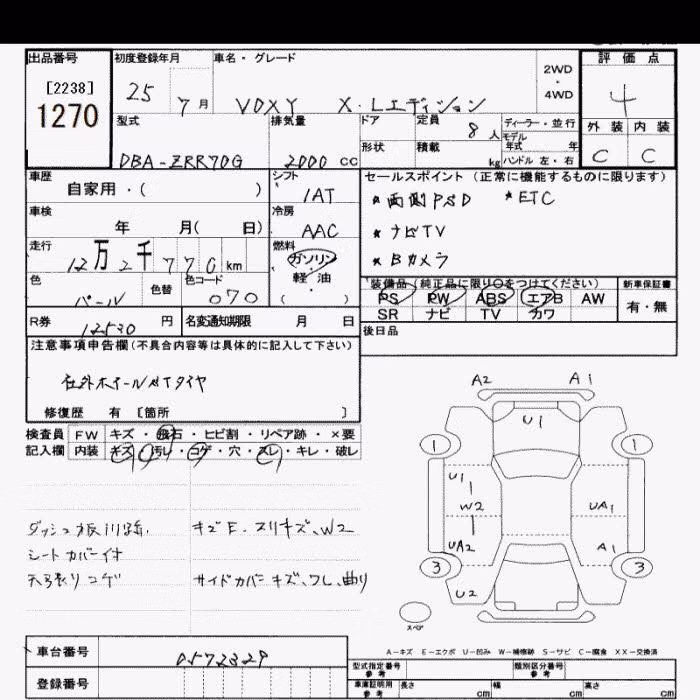 出品番号 初度登録年月 車名・グレード 2WD・4WD 評価点
[2238]
1270
25 7月 VOXY X・Lエディション 4
型式 排気量 ドア 定員 8人 ディーラー・並行 外装 内装
モデル年式 年
形状 積載 kg ハンドル 左・右 C C
DBA-ZRR70G 2000 CC
車歴 自家用・( ) シフト 1AT セールスポイント(正常に機能するものに限ります)
*両側PSD *ETC
車検 年 月( 日) 冷房 AAC
*ナビTV
走行 12万2千770km 燃料 ガソリン・軽・油 ( )
*Bカメラ
色 パール 色替 色コード 070
装備品(純正品に限り○をつけてください) 新車保証書
PS PW ABS エアB AW 有・無
SR ナビ TV カワ
R券 12530円 名変通知期限 月 日 後日品
注意事項申告欄(不具合内容等は具体的に記入して下さい)
社外ホイール
修復歴 有 [箇所 ]
検査員 FW キズ・飛石・ヒビ割・リペア跡・×要
記入欄 内装 キズ・汚レ・コゲ・穴・スレ・キレ・破レ
A2 A1
U1
1 1
U1
W2 UA1
UA2 A1
3 3
U2
スペア
シートカバー付
天張りコゲ サイドカバーキズ、ワレ、曲り
A-キズ E-エクボ U-凹み W-補修跡 S-サビ C-腐食 XX-交換済
車台番号 0572329
登録番号
型式指定番号 参考 類別区分番号 参考
車庫証明用 参考 長さ cm 幅 cm 高さ cm